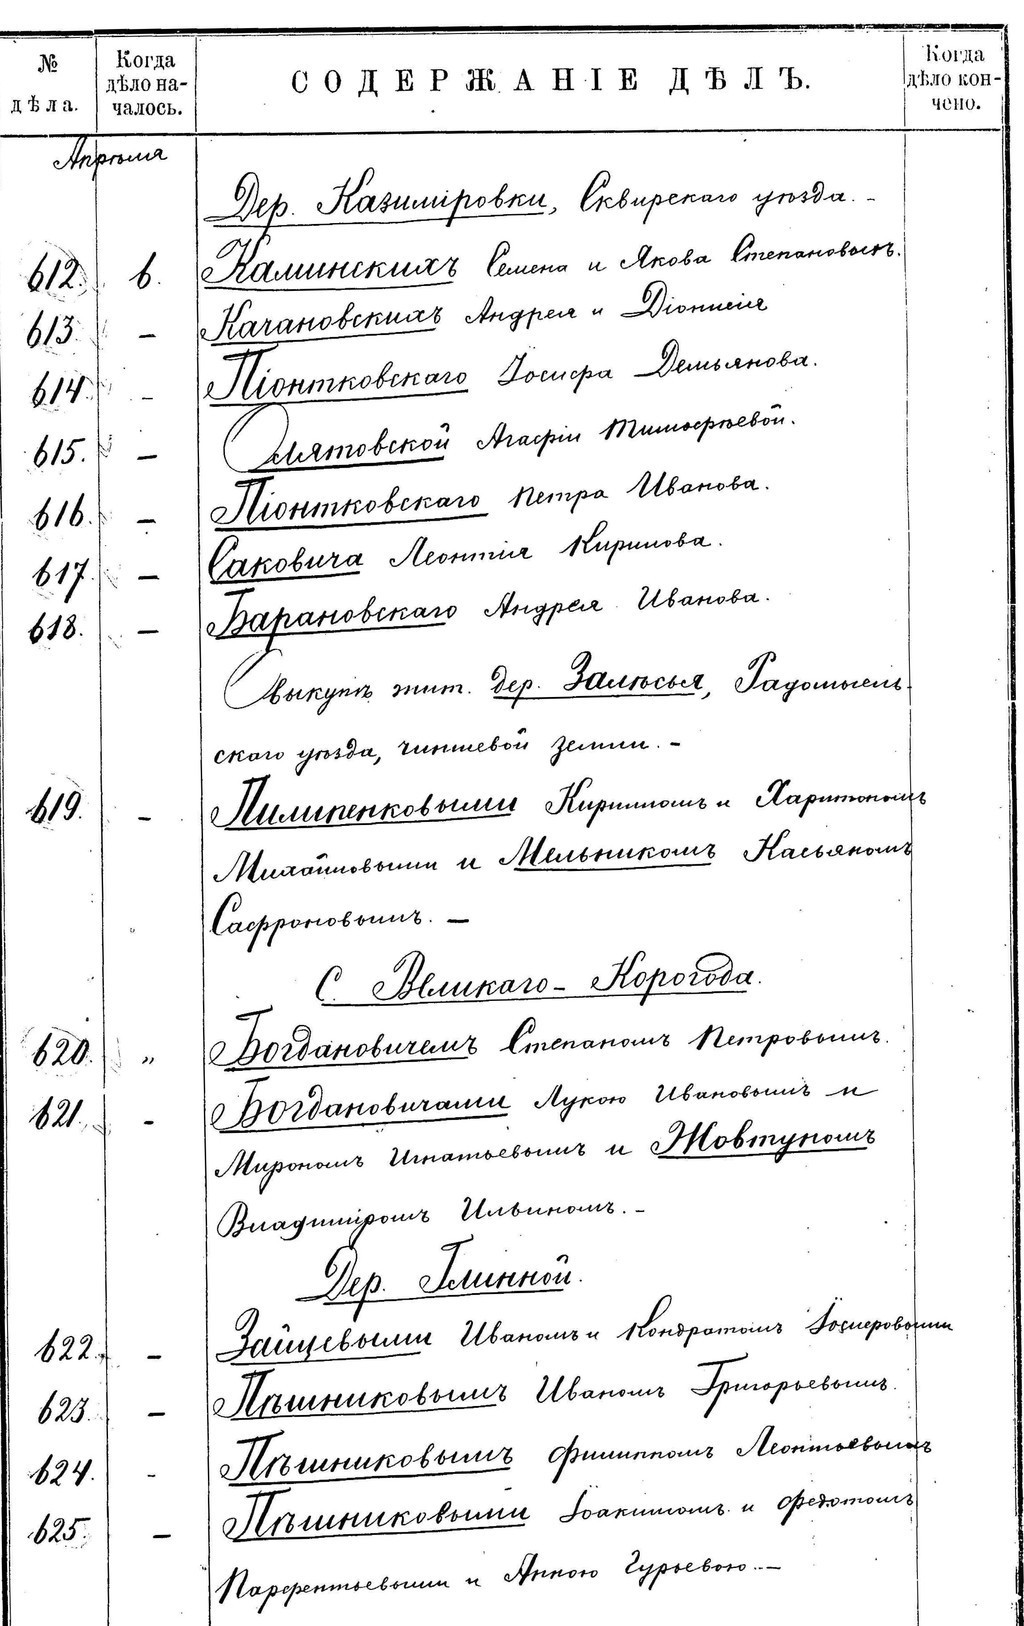 № дѣла.
Когда дѣло началось.
СОДЕРЖАНІЕ ДѢЛЪ.
Когда дѣло кончено.
Апрѣля
Дер. Казиміровки, Сквирскаго уѣзда. -
612. 6. Каминскихъ Семена и Якова Степановыхъ.
613. - Качановскихъ Андрея и Діонисія
614. - Піонтковскаго Іосифа Демьянова.
615. - Агафіи Тимофѣевой.
616. - Піонтковскаго Петра Иванова.
617. - Саковича Леонтія Кирилова.
618. - Барановскаго Андрея Иванова.
О выкупѣ жит. дер. Залѣсья, Радомысль-
скаго уѣзда, чиншевой земли. -
619. - Пилипенковыми Кириломъ и Харитономъ
Михайловыми и Мельникомъ Касьяномъ
Сафроновымъ. -
С. Великаго-Корогода.
620. „ Богдановичемъ Степаномъ Петровымъ.
621. - Богдановичами Лукою Ивановымъ и
Мирономъ Игнатьевымъ и Жовтуномъ
Владиміромъ Ильинымъ. -
Дер. Глинной.
622. - Зайцевыми Иваномъ и Кондратомъ Іосифовыми
623. - Пѣшниковымъ Иваномъ Григорьевымъ.
624. - Пѣшниковымъ Филиппомъ Леонтьевымъ
625. - Пѣшниковыми Іоакимомъ и Федотомъ
Парфентьевыми и Анною Гурьевою. -